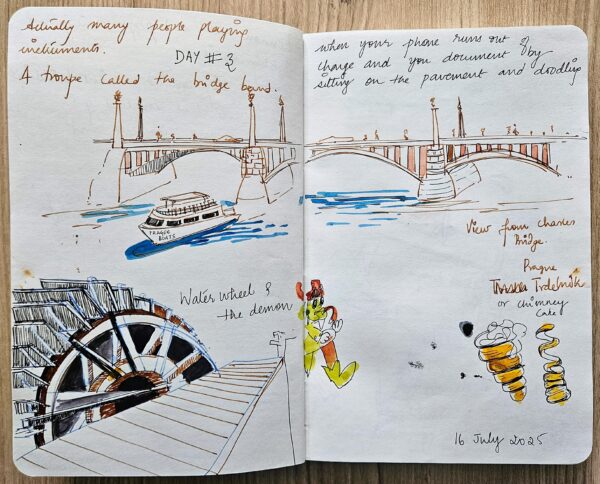 Actually many people playing
instruments.
DAY #3
A troupe called the bridge band.
PRAGUE
BOATS
Water wheel &
the demon
when your phone runs out of
charge and you document by
sitting on the pavement and doodling
View from Charles
Bridge.
Prague
Trdelnik
or chimney
cake
16 July 2025